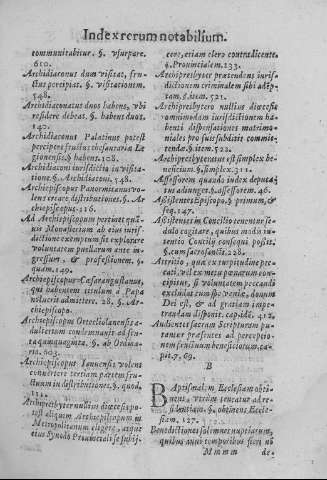 Index rerum notabilium.
communicabitur. §. usurpare.
610.
Archidiaconus dum visitat, fru-
ctus percipiat. §. visitationem.
548.
Archidiaconatus duos habens, ubi
residere debeat. §. habens duos.
140.
Archidiaconus Palatinus potest
percipere fructus thesauraria
gionensis. § habens. 108.
Archidiaconi iurisdictio in visita-
tione. §. Archidiaconi. 548.
Archiepiscopus Panormitanus vo-
lens creare distributiones. §. Ar-
chiepiscopus. 116.
Ad Archiepiscopum pertinet qua-
uis Monasterium ab eius iuris-
dictione exemptum sit explorare
voluntatem puellarum ante in-
gressum, & professionem. §.
quam. 149.
Archiepiscopus Cæsaraugustanus,
qui habentem titulum à Papa
noluerit admittere. 28. §. Ar-
chiepiscopo.
Archiepiscopus
adulterum condemnauit ad sen-
§. ab Ordina-
ria. 603.
Archiepiscopus Ianuensis volens
conuertere tertiam partem fru-
ctuum in distributiones. §. quod,
112.
Archipresbyter nullius diœcesis po-
test aliquem Archiepiscopum in
Metropolitanum eligere, atque
eius Synodo Prouinciali se subij-
cere, etiam clero contradicente.
§. Prouincialem. 133.
Archipresbyter prætendens iuris-
dictionem criminalem sibi adep-
tam. §. item. 521.
Archipresbytero nullius diœcesis
omnimodam iurisdictionem ha-
benti dispensationes matrimo-
niales pro suis subditis commit-
tendæ. §. item. 522.
Archipresbyteratus est simplex be-
neficium. §. simplex. 311.
Assessorem quando index deputa-
tus adiungat. §. assessorem. 46.
Assistentes Episcopo. § primum, &
seq. 147.
Assistentes in Concilio tenentur se-
dulo cogitare, quibus modis in-
tentio Concilij consequi possit.
§. cum sacrosancti. 228.
Attritio, quæ ex turpitudine pec-
cati, vel ex metu pœnarum con-
cipitur, si voluntatem peccandi
excludat cum spe veniæ, donum
Dei est, & ad gratiam impe-
trandam disponit. cap. 4. 412.
Audientes sacram Scripturam pu-
tantur præsentes ad perceptio-
nem fructuum beneficiorum. ca-
pit. 7. 69.
B
Baptismalem Ecclesiam obti-
nens, vtrùm teneatur ad re-
sidentiam. §. obtinens Eccle-
siam. 127.
Benedictiones solemnes nuptiarum,
quibus anni temporibus fieri nō
M m m m
de-